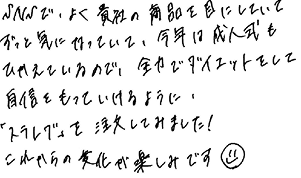 SNSで、よく貴社の商品を目にしていて
ずっと気になっていて、今年は成人式も
ひかえているので、全力でダイエットをして
自信をもっていけるように、
「スラレグ」を注文してみました!
これからの変化が楽しみです☺